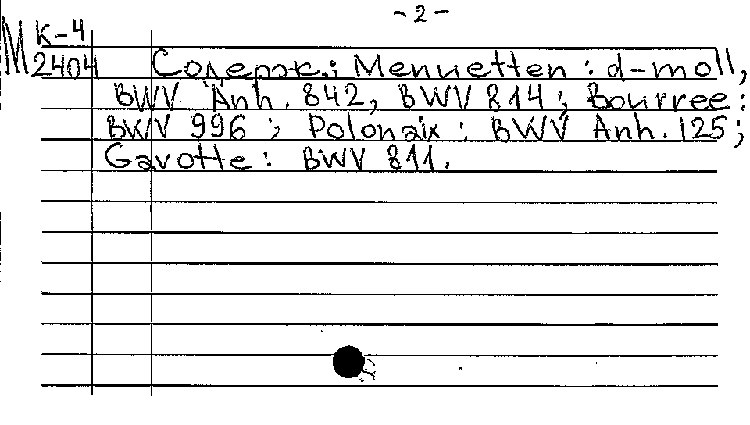 - 2 -
М К-4
2404 Содерж.: Menuetten: d-moll,
BWV Anh. 842, BWV 814; Bourree:
BWV 996; Polonaix: BWV Anh. 125;
Gavotte: BWV 811.